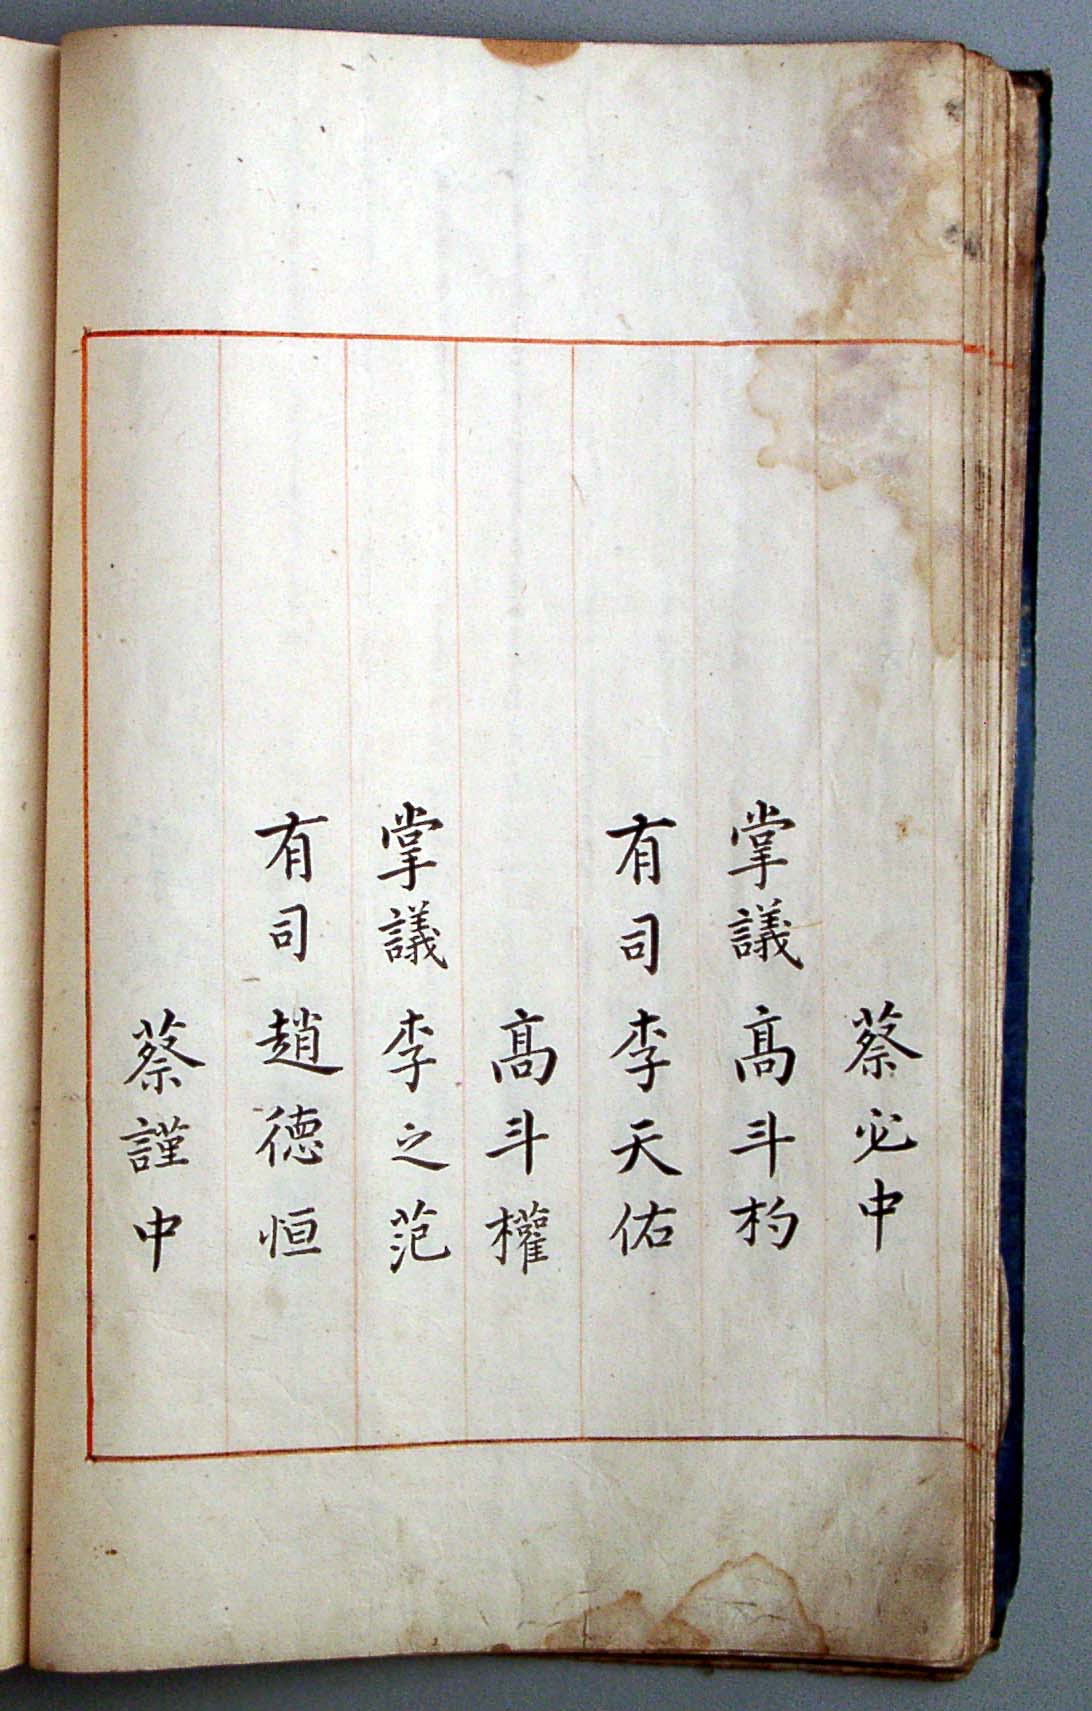 蔡必中
掌議 髙斗杓
有司 李天佑
髙斗權
掌議 李之范
有司 趙德恒
蔡謹中